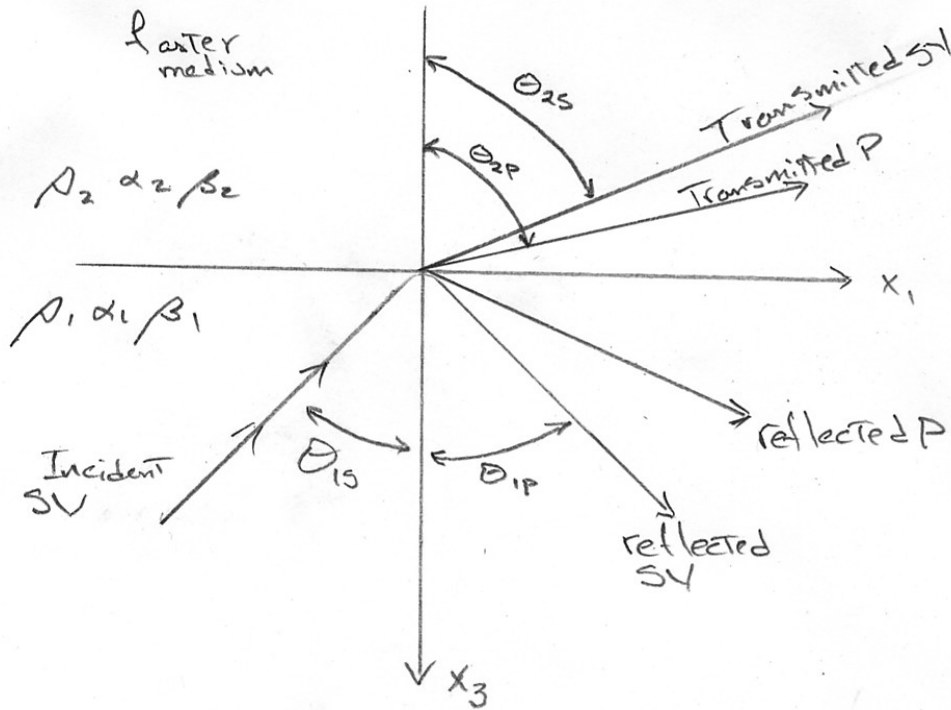 faster
medium
θ₂ₛ
Transmitted SV
θ₂ₚ
Transmitted P
ρ₂ α₂ β₂
x₁
ρ₁ α₁ β₁
reflected P
Incident
SV
θ₁ₛ
θ₁ₚ
reflected
SV
x₃